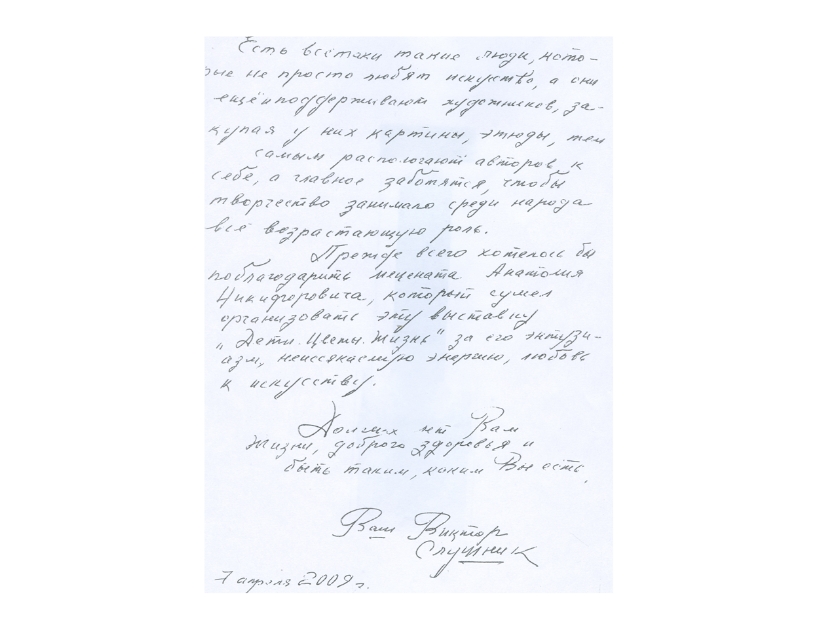 Есть всётаки такие люди, кото-
рые не просто любят искусство, а они
ещё и поддерживают художников, за-
купая у них картины, этюды, тем
самым распологают авторов к
себе, а главное заботятся, чтобы
творчество занимало среди народа
всё возрастающую роль.
Прежде всего хотелось бы
поблагодарить мецената Анатолия
Никифоровича, который сумел
организовать эту выставку
„Дети. Цветы. Жизнь" за его энтузи-
азм, неиссякаемую энергию, любовь
к искусству.
Долгих лет Вам
жизни, доброго здоровья и
быть таким, каким Вы есть.
Ваш Виктор
Слушник
7 апреля 2009 г.